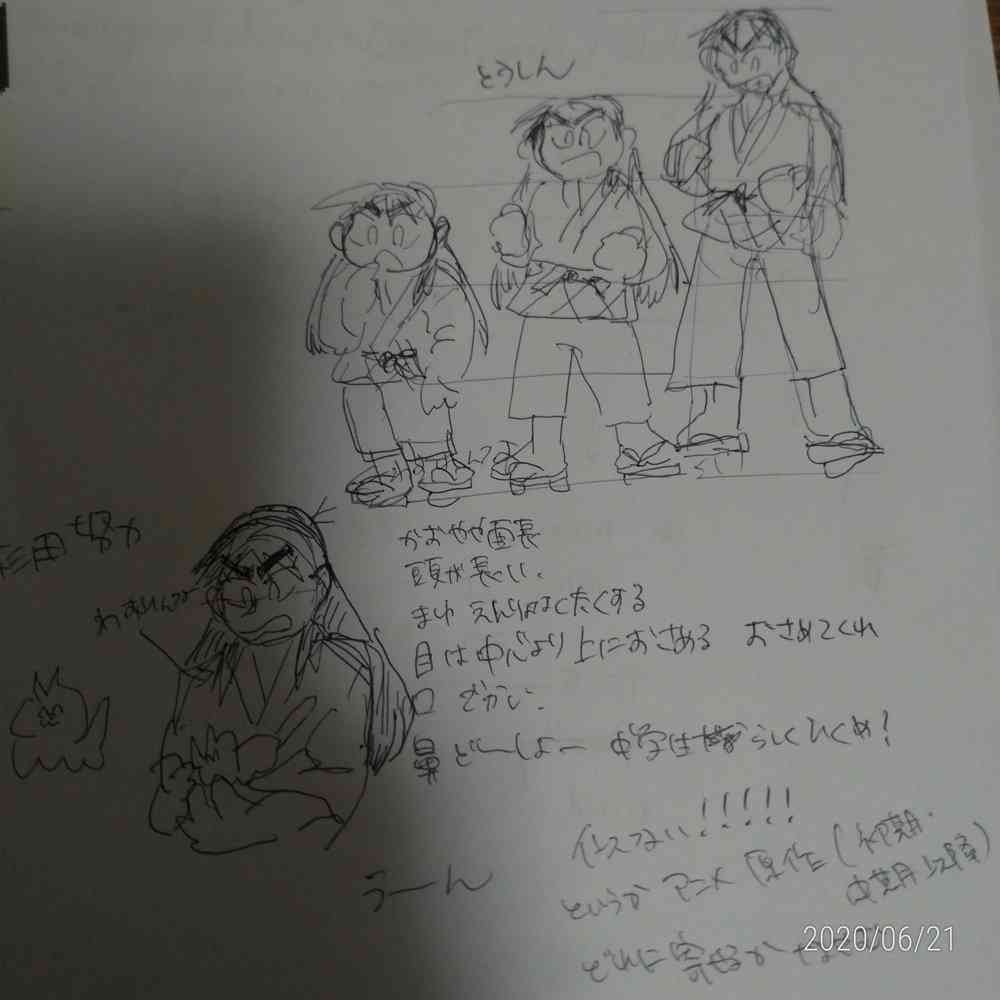 とうしん
杉田 努力
かおやや面長
頭が長い。
まゆ えんりょなくたくする
目は中心より上におさめる おさめてくれ
口 でかい。
鼻 どーしよー 中学生らしくひくめ!
似てない!!!!!
うーん
というか アニメ 原作(初期・
中期以降)
どれに寄せるか
2020/06/21